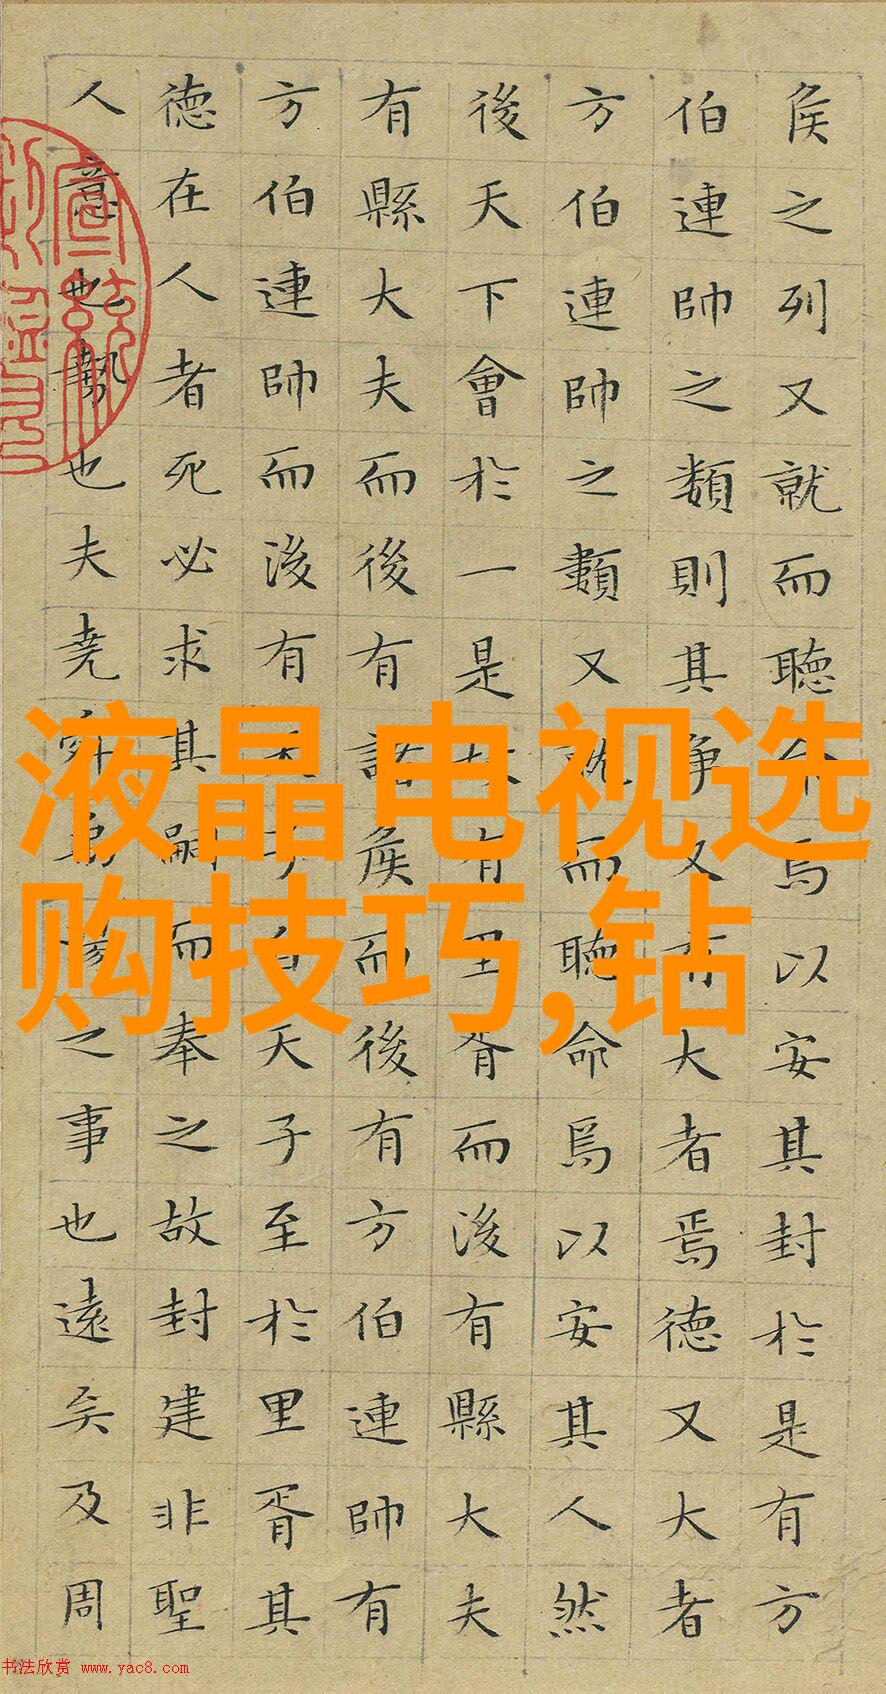 侯之列又就而聽命焉以安其封於是有方
伯連帥之類則其爭又有大者焉德又大者
方伯連帥之類又就而聽命焉以安其人然
後天下會於一是故有里胥而後有縣大夫
有縣大夫而後有諸侯而後有方伯連帥有
方伯連帥而後有天子自天子至於里胥其
德在人者死必求其嗣而奉之故封建非聖
人意也勢也夫堯舜禹湯之事也遠矣及周
液晶电视选
购技巧,钻
书法欣赏 www.yac8.com